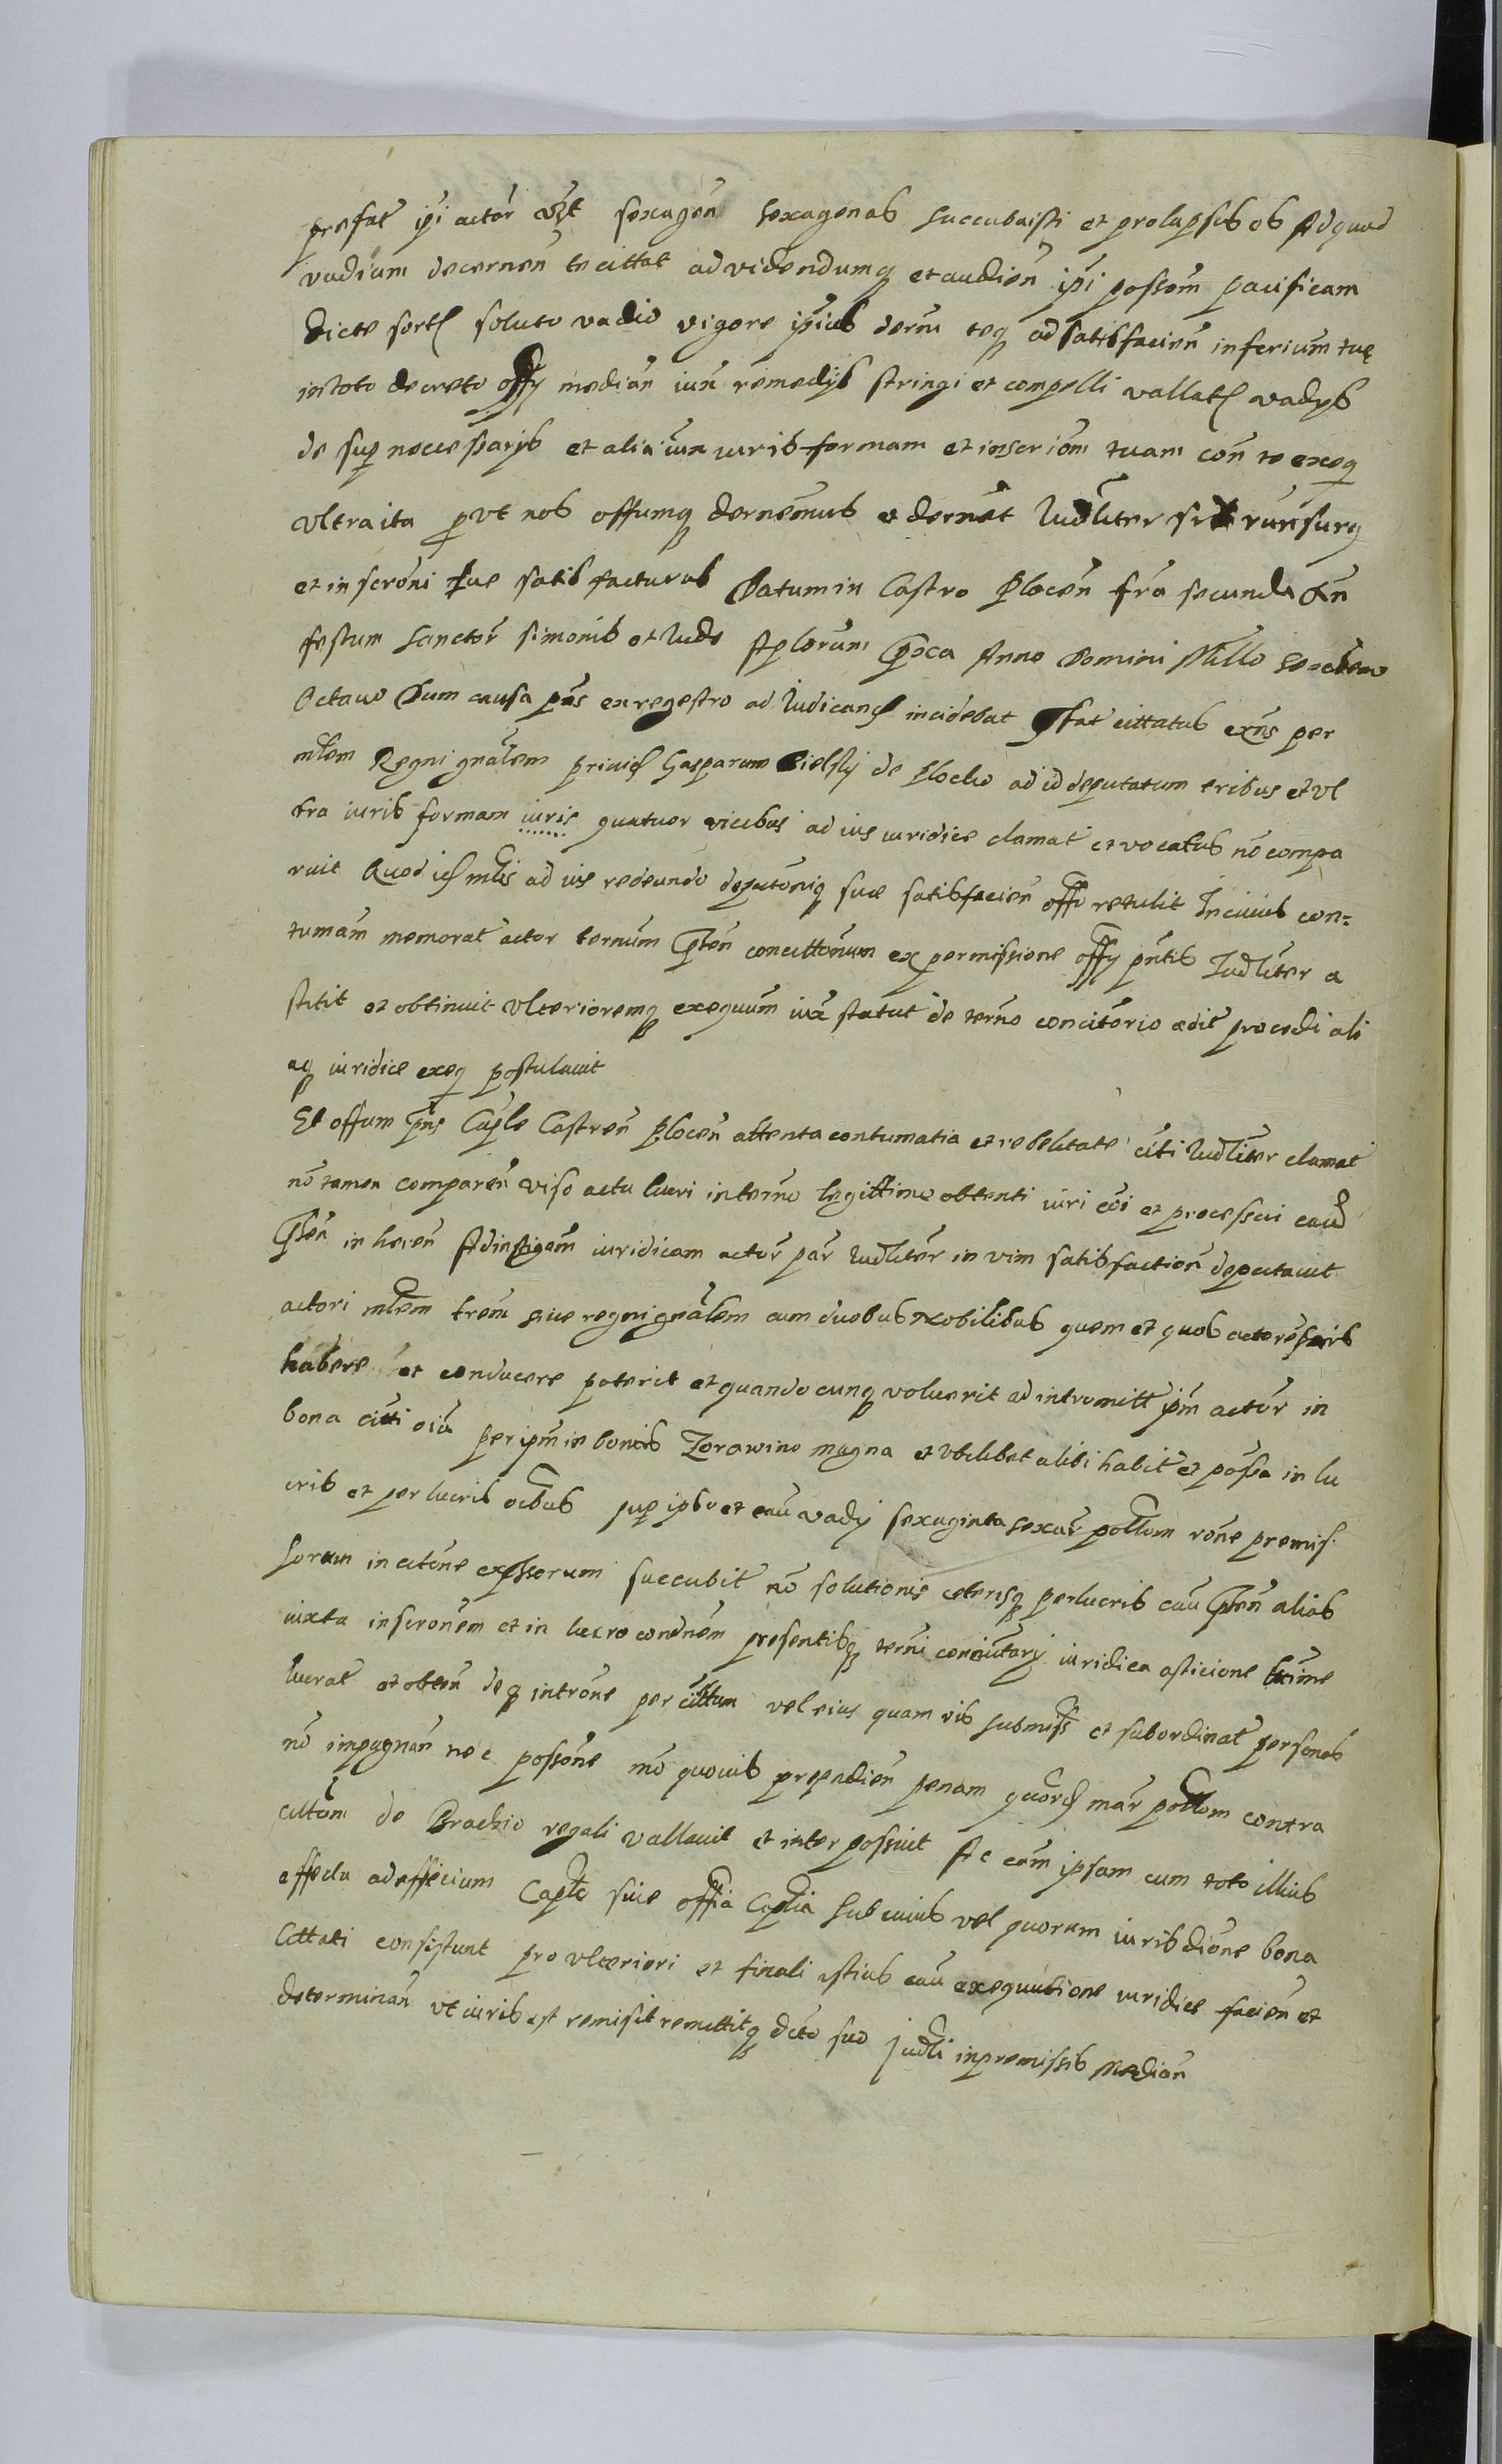 prefat ipi actor cont sexagen sexagenas succubuisti et prolapsus es Ad quod
vadium decernen te cittat ad videndumq et audien ipi possom pacificam
dicte sort soluto vadio vigore ipius dcrni teq ad satisfacien inscrium tuę
in toto decreto offy median iun remedys stringi et compelli vallat vadys
de sup necessarys et alia iux iuris formam et inscriom tuam con te exeq
vltra ita pvt nos offumq dcrnemus et dcrnet Iudliter
et inscroni tue satisfacturus Datum in Castro Plocen fra secunda an
festum Sanctor Simonis et Iude Aplorum pxca Anno Domini Millo
Octavo Dum causa pns ex regestro ad Iudicand incidebat pfat cittatus exns per
mlem Regni gnalem provid Gasparum Bielsky de Plocko ad id deputatum tribus et vl
tra iuris formam iuris quatuor vicibus ad ius iuridice clamat et vocatus no compa
ruit Quod id mlis ad ius redeundo deputoniq sue satisfacien offo retulit In cuius con=
tumam memorat actor ternum pten concittonum ex permissione offy pntis Iudliter a
stitit et obtinuit vlterioremq exequum iux statut de terno concitorio ædit procedi ali
aq iuridice exeq postulavit
Et offum pns Caple Castren Plocen attenta contumatia et rebelitate citi Iudliter clamat
no tamen comparen viso actu lucri in terno legittime obtenti iuri coi et processui caud
pten in heren Ad instigam iuridicam actor par Iudliter in vim satisfaction deputavit
actori mlem trem sive regni gnalem cum duobus Nobilibus quem et quos actor
habere et conducere poterit et quandocunq voluerit ad intromitt ipm actor in
bona citti oia per ipm in bonis Zorawino magna et vbilibet alibi habit et possa in lu
cris et perlucris oibus sup ipso et cau vady sexaginta sexar pollom rone premis
sorum in citone expssorum succubit no solutionis ceterisq perlucris cau pten alias
iuxta inscronem et in lucro condnem presentibq terni concitutary iuridica asticione
lucrat et obten deq introne per cittum vel eius quam vis submiss et subordinat personas
no impugnan nec possone mo quovis prependien penam quord mar pollom contra
cittum de Brachio regali vallavit et interpossuit Ac eam ipsam cum toto illius
effectu ad officium Caple sive offia Caplia sub cuius vel quorum iurisdione bona
Cittati consistunt pro vlteriori et finali istius cau exequutione iuridice facien et
determinan vt iuris est remisit remittitq dcto suo Judli in premissis Median